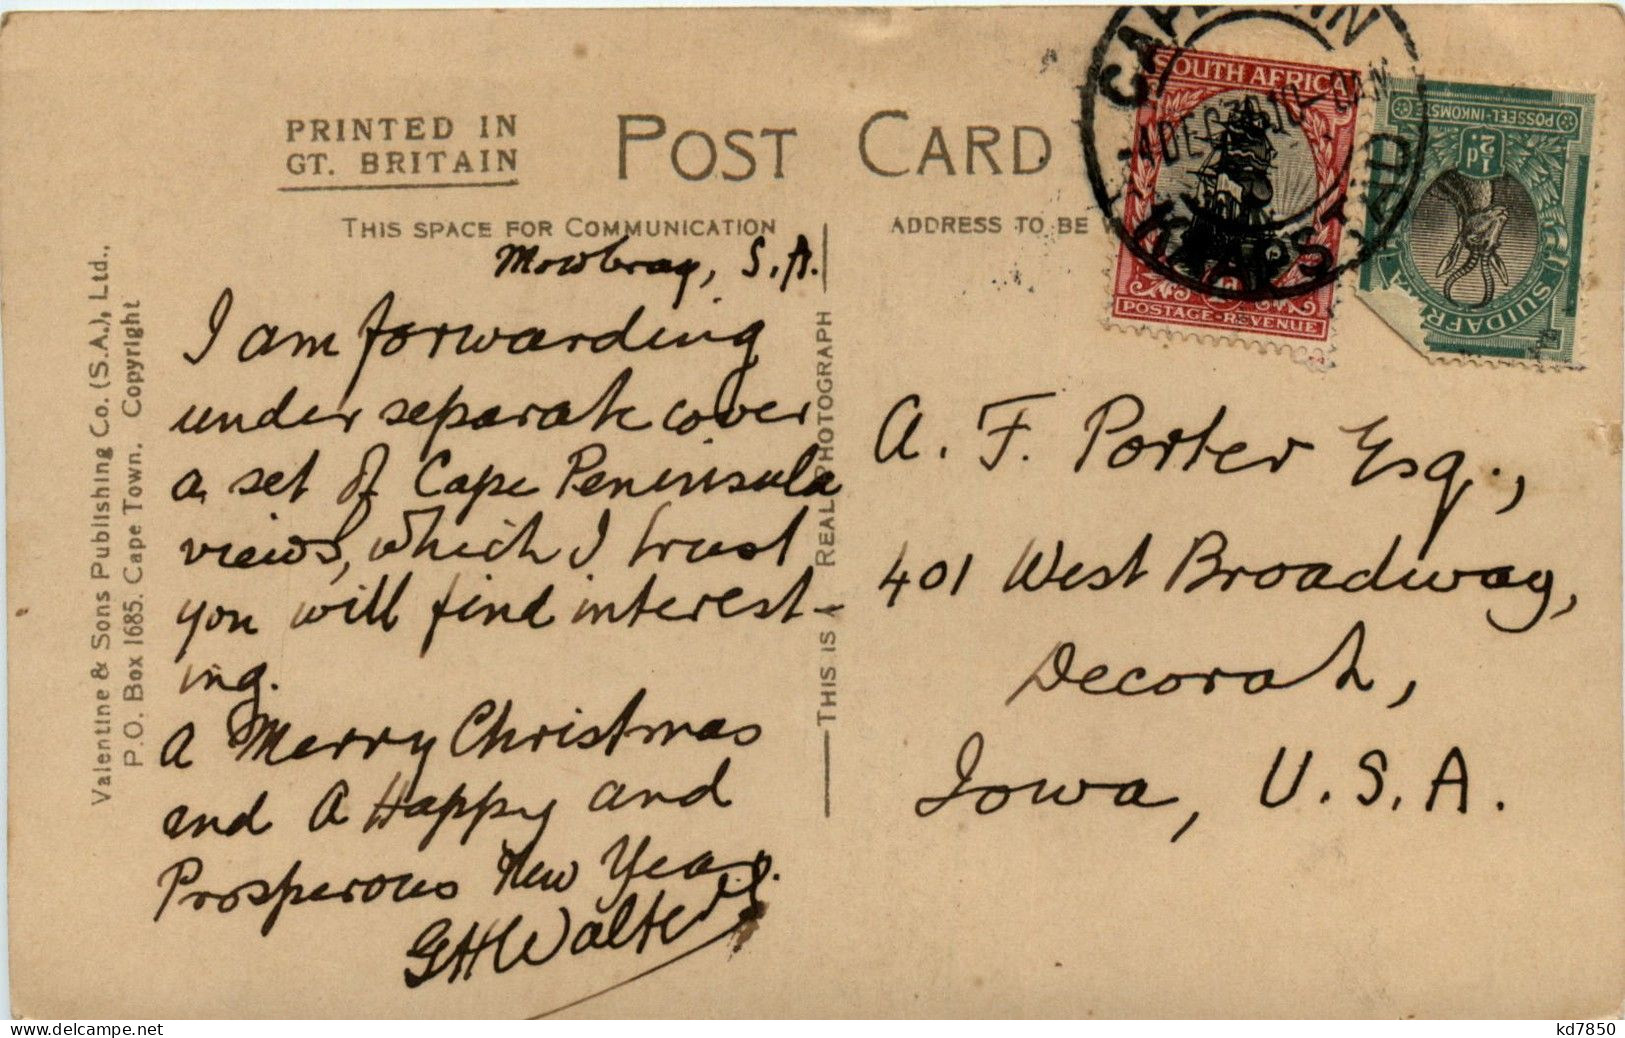 PRINTED IN
GT. BRITAIN
POST CARD
THIS SPACE FOR COMMUNICATION
ADDRESS TO BE
Mowbray, S.A.
I am forwarding
under separate cover
a set of Cape Peninsula
views, which I trust
you will find interest-
ing.
A Merry Christmas
and A Happy and
Prosperous New Year.
GHWalters
Valentine & Sons Publishing Co. (S.A.), Ltd.,
P.O. Box 1685. Cape Town. Copyright
THIS IS A REAL PHOTOGRAPH
SOUTH AFRICA
POSTAGE-REVENUE
KAAPSTAD
POSSEEL-INKOMSTE
½d
SUIDAFRIKA
A. F. Porter Esq.,
401 West Broadway,
Decorah,
Iowa, U.S.A.
delcampe.net
kd7850